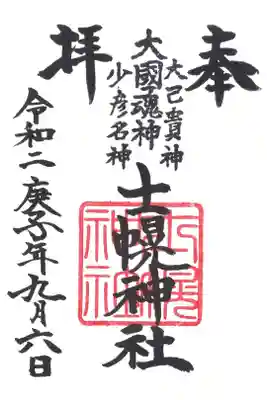 奉拝
大己貴神
大國魂神
少彦名神
士幌神社
令和二庚子年九月六日
士幌神社